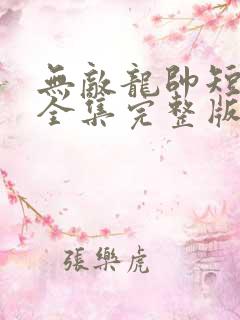 無敵龍帥短
全集完整版
張樂虎